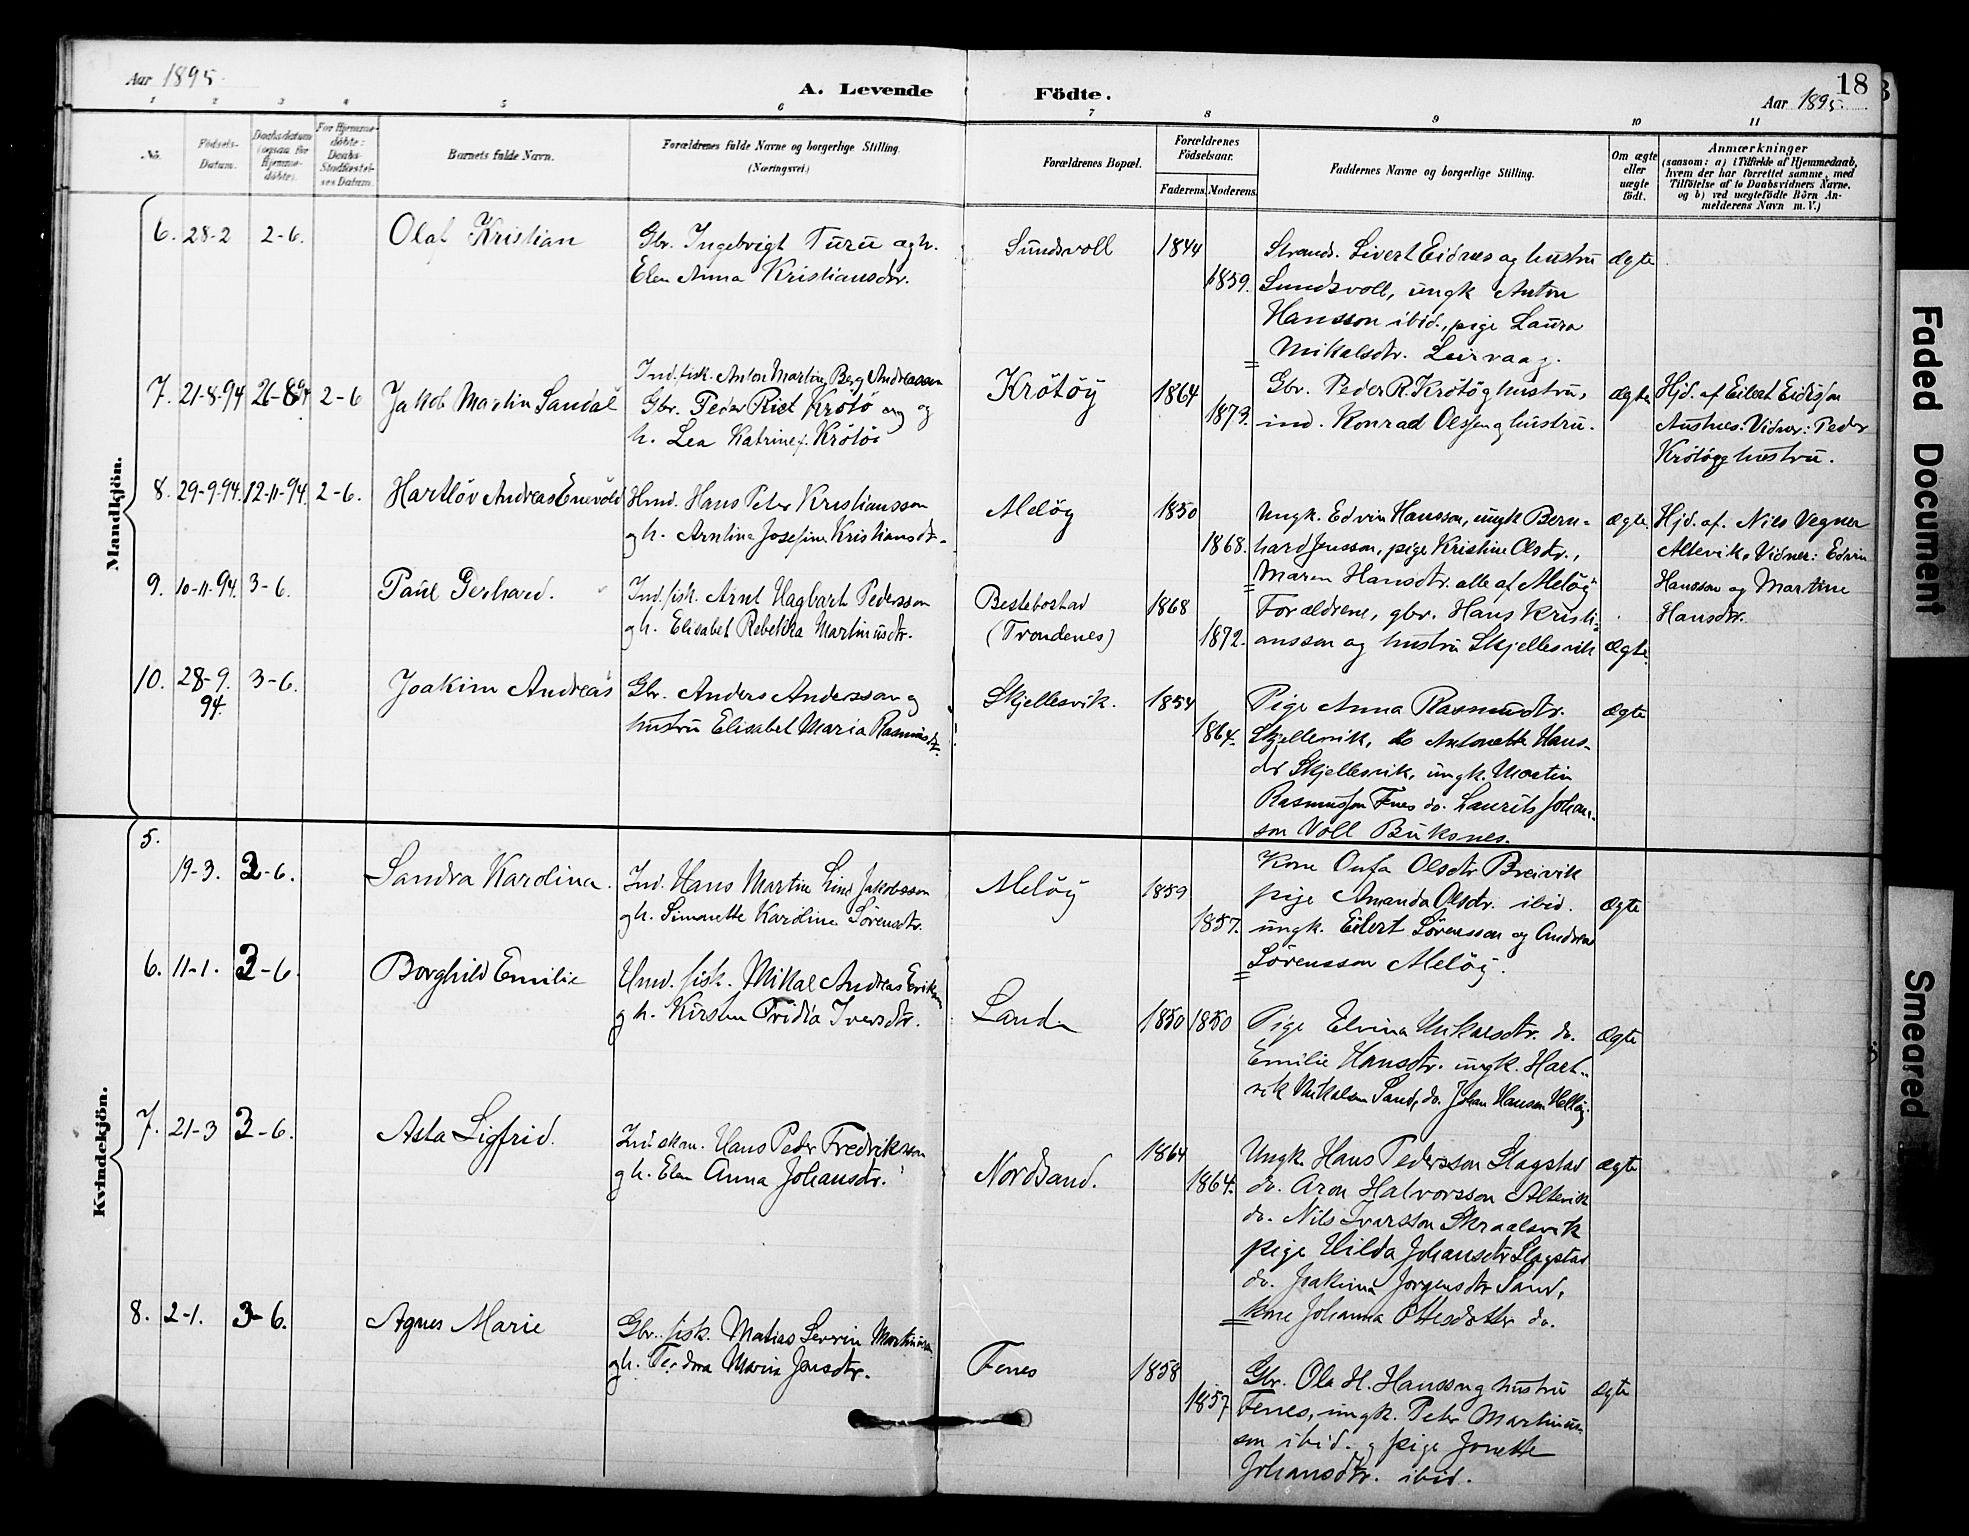 Aar 1895.
A. Levende Födte.
18
Aar 1895.
1 2 3 4 5 6 7 8 9 10 11
No.
Födsels-
Datum.
Daabsdatum
(ogsaa for
Hjemme-
döbte).
For Hjemme-
döbte:
Daabs-
Stadfæstel-
ses Datum.
Barnets fulde Navn.
Forældrenes fulde Navne og borgerlige Stilling.
(Næringsvei.)
Forældrenes Bopæl.
Forældrenes
Födselsaar.
Faderens. Moderens.
Faddernes Navne og borgerlige Stilling.
Om ægte
eller
uægte
födt.
Anmærkninger
(saasom: a) i Tilfælde af Hjemmedaab,
hvem der har forrettet samme, med
Tilföielse af to Daabsvidners Navne.
og b) ved uægtefödte Börn An-
melderens Navn m. V.)
Mandkjön.
6. 28-2 2-6. Olaf Kristian
Gbr. Ingebrigt Turu og h.
Elen Anna Kristiansdtr.
Sundsvoll 1844
1859.
Strands. Sivert Eidnes og hustru
Sundsvoll, ungk Anton
Hansson ibid., pige Laura
Mikalsdtr. Leirvaag.
ægte
7. 21-8-94 26-8-94 2-6 Jakob Martin Sandal
Ind. fisk. Anton Martin Berg Andreassen
Gbr. Peder Krötö og
h. Lea Katrine Krötöe
Krötöy 1864
1873.
Gbr. Peder R. Krötö g hustru,
ind. Konrad Olssen g hustru.
ægte
Hjd. af Eilert Eidissen
Austnes. Vidner: Peder
Krötö g hustru.
8. 29-9-94. 12-11-94. 2-6. Hartlöv Andreas Enevold
Hmd. Hans Peter Kristiansson
g h. Arntina Josefine Kristiansdtr.
Melöy 1850
1868.
Ungk. Edvin Hansson, ungk Bern-
hard Jensson, pige Kristine Olsdtr.,
Maren Hansdtr. alle af Melöy
ægte
Hjd. af. Nils Vegner
Altevik. Vidner: Edvin
Hansson og Martine
Hansdtr.
9. 10-11-94. 3-6. Paul Gerhard.
Ind. fisk. Arnt Hagbart Pedersson
g h. Elisabet Rebekka Martinusdtr.
Bestebostad
(Trondenes)
1868
1872.
Forældrene, gbr. Hans Kristi-
ansson og hustru Skjellesvik
ægte.
10. 28-9.
94.
3-6. Joakim Andreas
Gbr. Anders Andersson g
hustru Elisabet Maria Rasmusdtr.
Skjellesvik. 1854
1864.
Pige Anna Rasmusdtr.
Skjellesvik, do Antonette Hans-
dtr Skjellesvik, ungk. Martin
Rasmussen Fnes do. Laurits Johan-
son Voll Buksnes.
ægte
Kvindekjön.
5.
19-3. 3-6. Sandra Karolina.
Ind. Hans Martin Lind Jakobsson
g h. Simonette Karoline Sörensdtr.
Melöy 1859
1857.
Kone Olufa Olsdtr Breivik
pige Amanda Olsdtr. ibid.
ungk. Eilert Sörensson og Andreas
Sörensson Melöy.
ægte
6. 11-1. 3-6. Borghild Emilie
Hmd. fisk. Mikal Andreas Erikssen
g h. Kirsten Fridia Iversdtr.
Sand 1850 1850
Pige Elvina Mikalsdtr. do.
Emilie Hansdtr. ungk. Hart-
vik Mikalsen Sand, do. Johan Hansen Melöy.
ægte
7. 21-3 3-6. Asta Sigfrid.
Ind. skom. Hans Peter Fredriksson
g h. Elen Anna Johansdtr.
Nordsand. 1864
1864.
Ungk Hans Pedersson Slagstad
do. Aron Halvorsson Altevik
do. Nils Ivarsson Skraalsvik
pige Hilda Johansdtr Slagstad
do. Joakima Jörgensdtr Sand,
kone Johanna Ottesdatter do.
ægte
8. 2-1. 3-6. Agnes Marie
Gbr. fisk. Matias Severin Martinussen
g h. Teodora Maria Jensdtr.
Fenes 1858
1857
Gbr. Ola H. Hansson g hustru
Fenes, ungk. Peter Martinus-
son ibid. g pige Jonette
Johansdtr. ibid.
ægte
Faded Document
Smeared